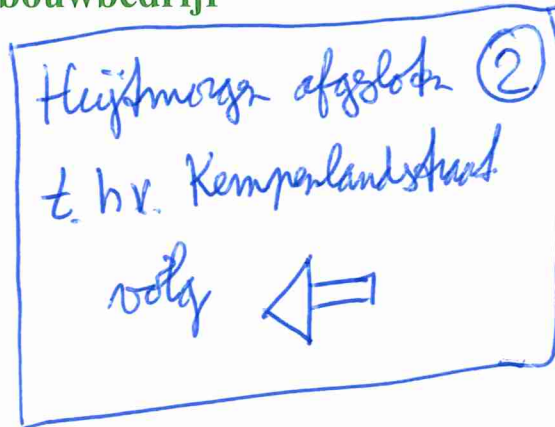 bouwbedrijf
Heijtmorgen afgesloten 2
t.h.v. Kempenlandstraat
volg